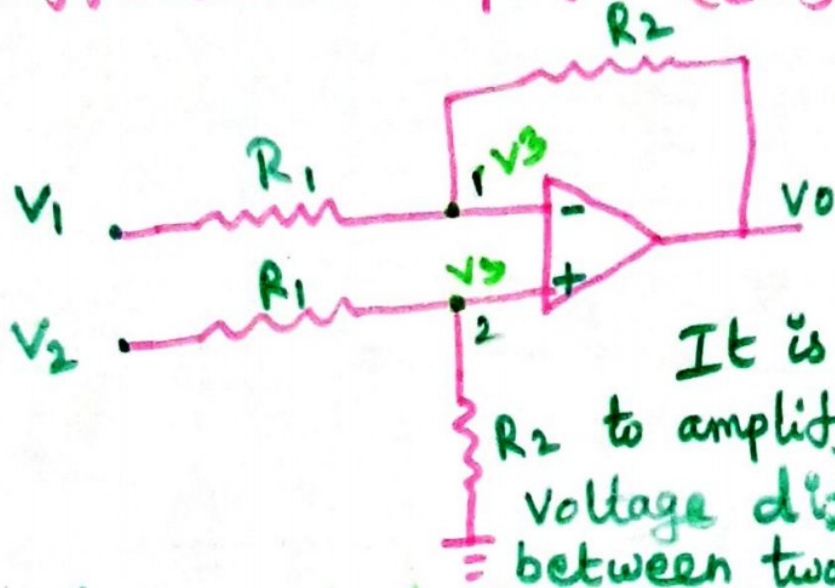 R2
R1
1 V3
V1
-
V0
R1
V3
+
V2
2
It is
R2 to amplif
Voltage di
between two